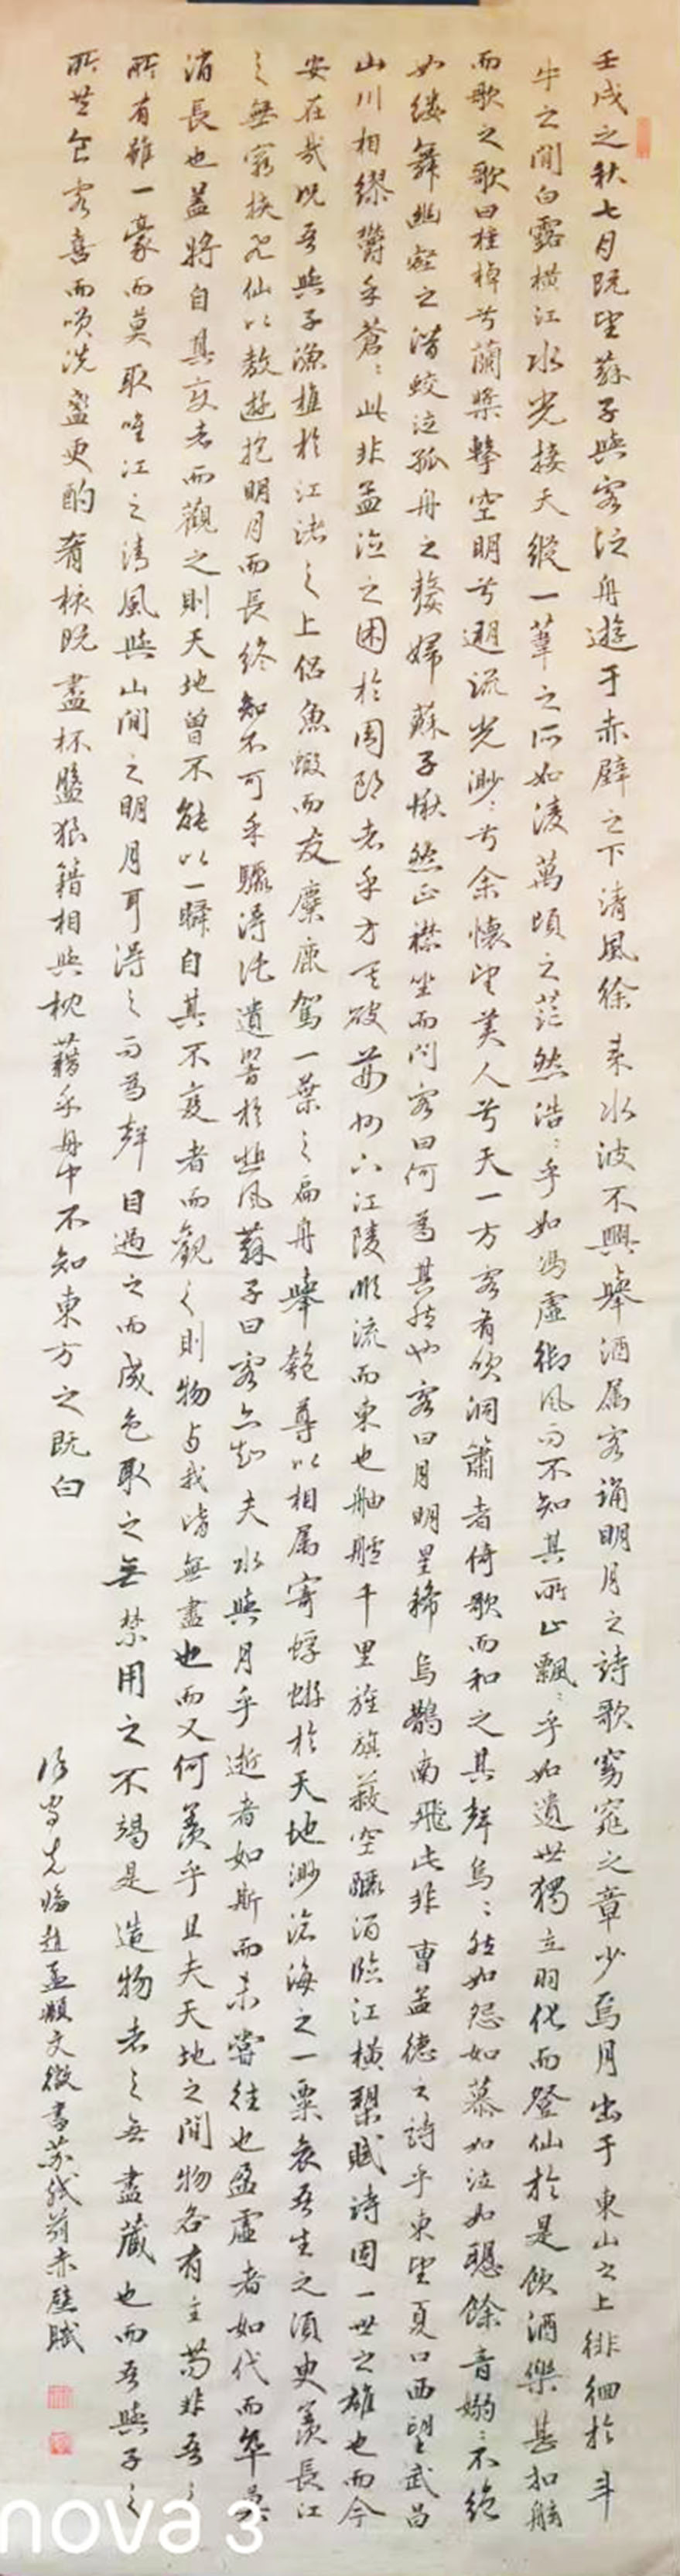 壬戌之秋七月既望蘇子與客泛舟遊于赤壁之下清風徐來水波不興舉酒属客誦明月之詩歌窈窕之章少焉月出于東山之上徘徊於斗
牛之間白露橫江水光接天縱一葦之所如凌萬頃之茫然浩〻乎如馮虛御風而不知其所止飄〻乎如遺世獨立羽化而登仙於是飲酒樂甚扣舷
而歌之歌曰桂棹兮蘭槳擊空明兮遡流光渺〻兮余懷望美人兮天一方客有吹洞簫者倚歌而和之其聲烏〻然如怨如慕如泣如聽餘音嫋〻不絕
如縷舞幽壑之潛蛟泣孤舟之嫠婦蘇子愀然正襟坐而問客曰何為其然也客曰月明星稀烏鵲南飛此非曹孟德之詩乎東望夏口西望武昌
山川相繆鬱乎蒼〻此非孟德之困於周郎者乎方其破荊州下江陵順流而東也舳艫千里旌旗蔽空釃酒臨江橫槊賦詩固一世之雄也而今
安在哉況吾與子漁樵於江渚之上侶魚蝦而友麋鹿駕一葉之扁舟舉匏尊以相属寄蜉蝣於天地渺滄海之一粟哀吾生之須臾羨長江
之無窮挾飛仙以敖遊抱明月而長終知不可乎驟得託遺響於悲風蘇子曰客亦知夫水與月乎逝者如斯而未嘗往也盈虛者如代而卒莫
消長也蓋將自其变者而觀之則天地曾不能以一瞬自其不变者而觀之則物与我皆無盡也而又何羨乎且夫天地之間物各有主苟非吾之
所有雖一豪而莫取唯江之清風與山間之明月耳得之而為聲目遇之而成色取之無禁用之不竭是造物者之無盡藏也而吾與子之
所共食客喜而笑洗盞更酌肴核既盡杯盤狼籍相與枕藉乎舟中不知東方之既白
臨趙孟頫文徵書苏軾前赤壁賦
nova 3